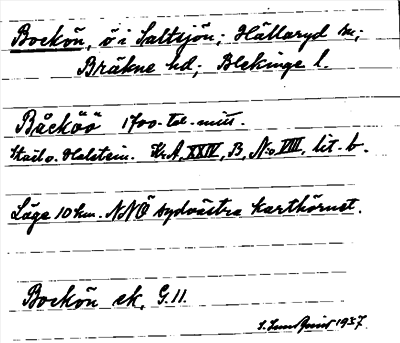 Bockön, ö i Saltsjön; Hällaryd sn;
Bräkne hd; Blekinge l.
Båcköö 1700-tal-mitt.
Stael o. Holstein. KrA, XXIV, B, N:o VIII, lit. b.
Läge 10 km. NNÖ sydvästra karthörnet.
Bockön ek. G.11.
S. Lundquist 1937.